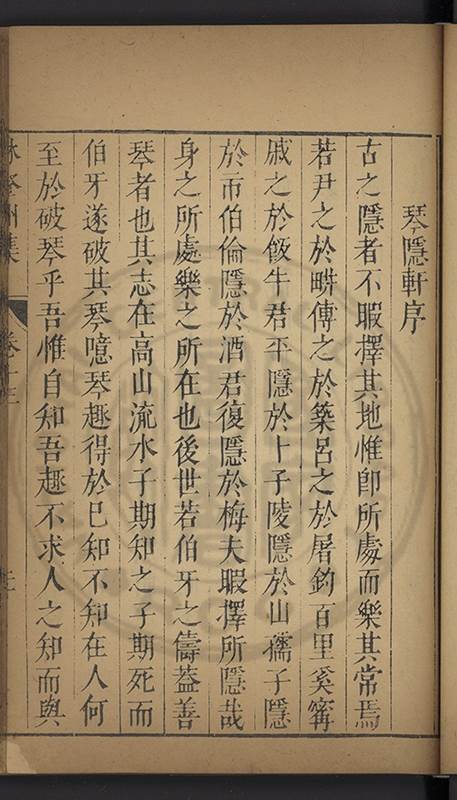 琴隱軒序
古之隱者不暇擇其地惟卽所處而樂其常焉
若尹之於畊傅之於築呂之於屠鈞百里奚寗
戚之於飯牛君平隱於卜子陵隱於山孺子隱
於市伯倫隱於酒君復隱於梅夫暇擇所隱哉
身之所處樂之所在也後世若伯牙之儔葢善
琴者也其志在高山流水子期知之子期死而
伯牙遂破其琴噫琴趣得於已知不知在人何
至於破琴乎吾惟自知吾趣不求人之知而與
集
卷十三